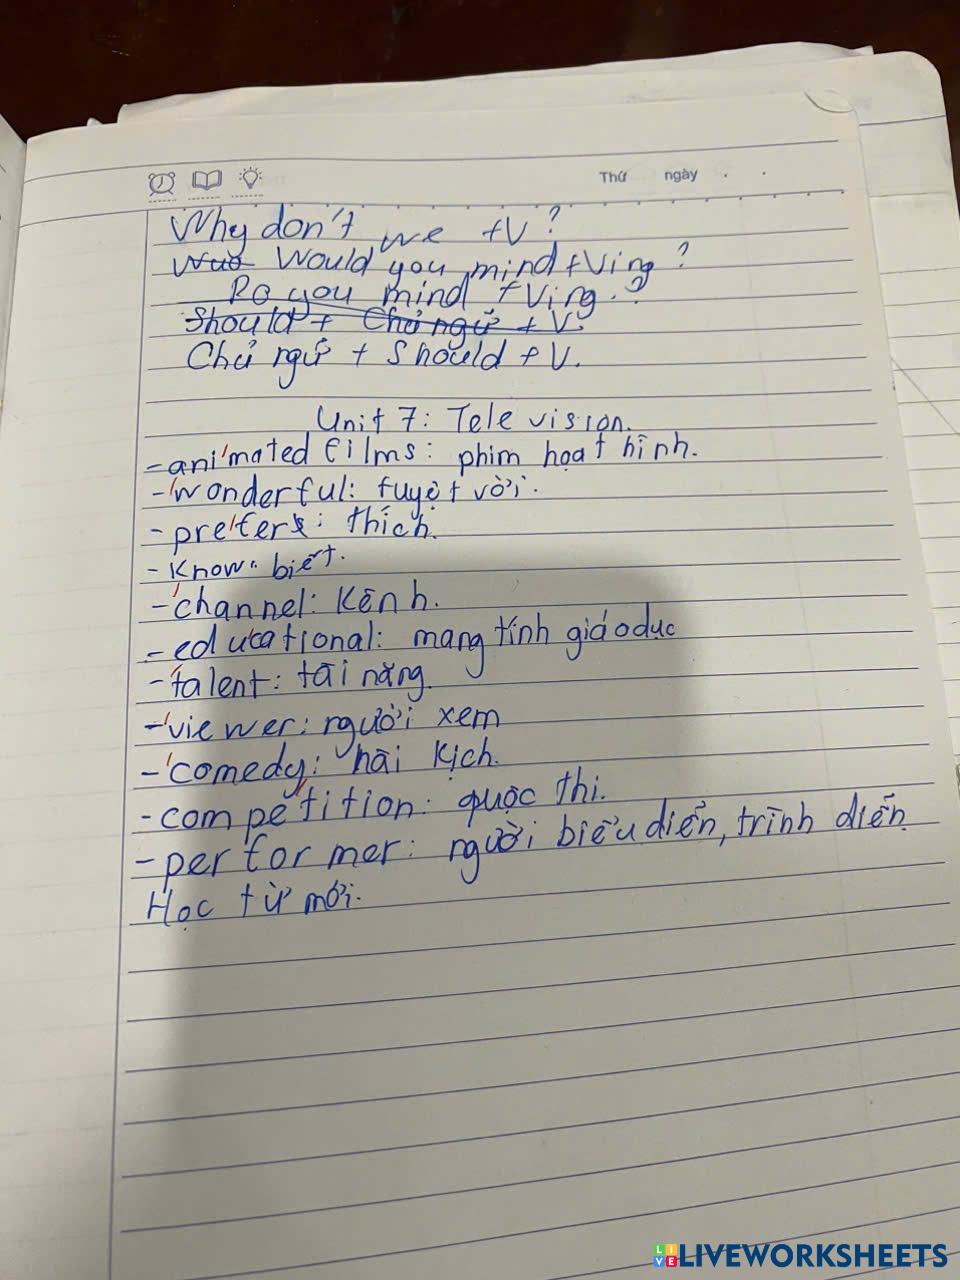 Thứ ngày . .
Why don't we +V?
Would you mind +Ving?
Do you mind +Ving.?
Should + Chủ ngữ + V.
Chủ ngữ + Should + V.
Unit 7: Television.
- ani'mated films: phim hoạt hình.
- 'wonderful: tuyệt vời.
- pre'fer: thích.
- Know: biết.
- 'channel: Kênh.
- edu'cational: mang tính giáo dục
- 'talent: tài năng.
- 'viewer: người xem
- 'comedy: hài kịch.
- compe'tition: quộc thi.
- performer: người biểu diễn, trình diễn
Học từ mới.
LIVEWORKSHEETS